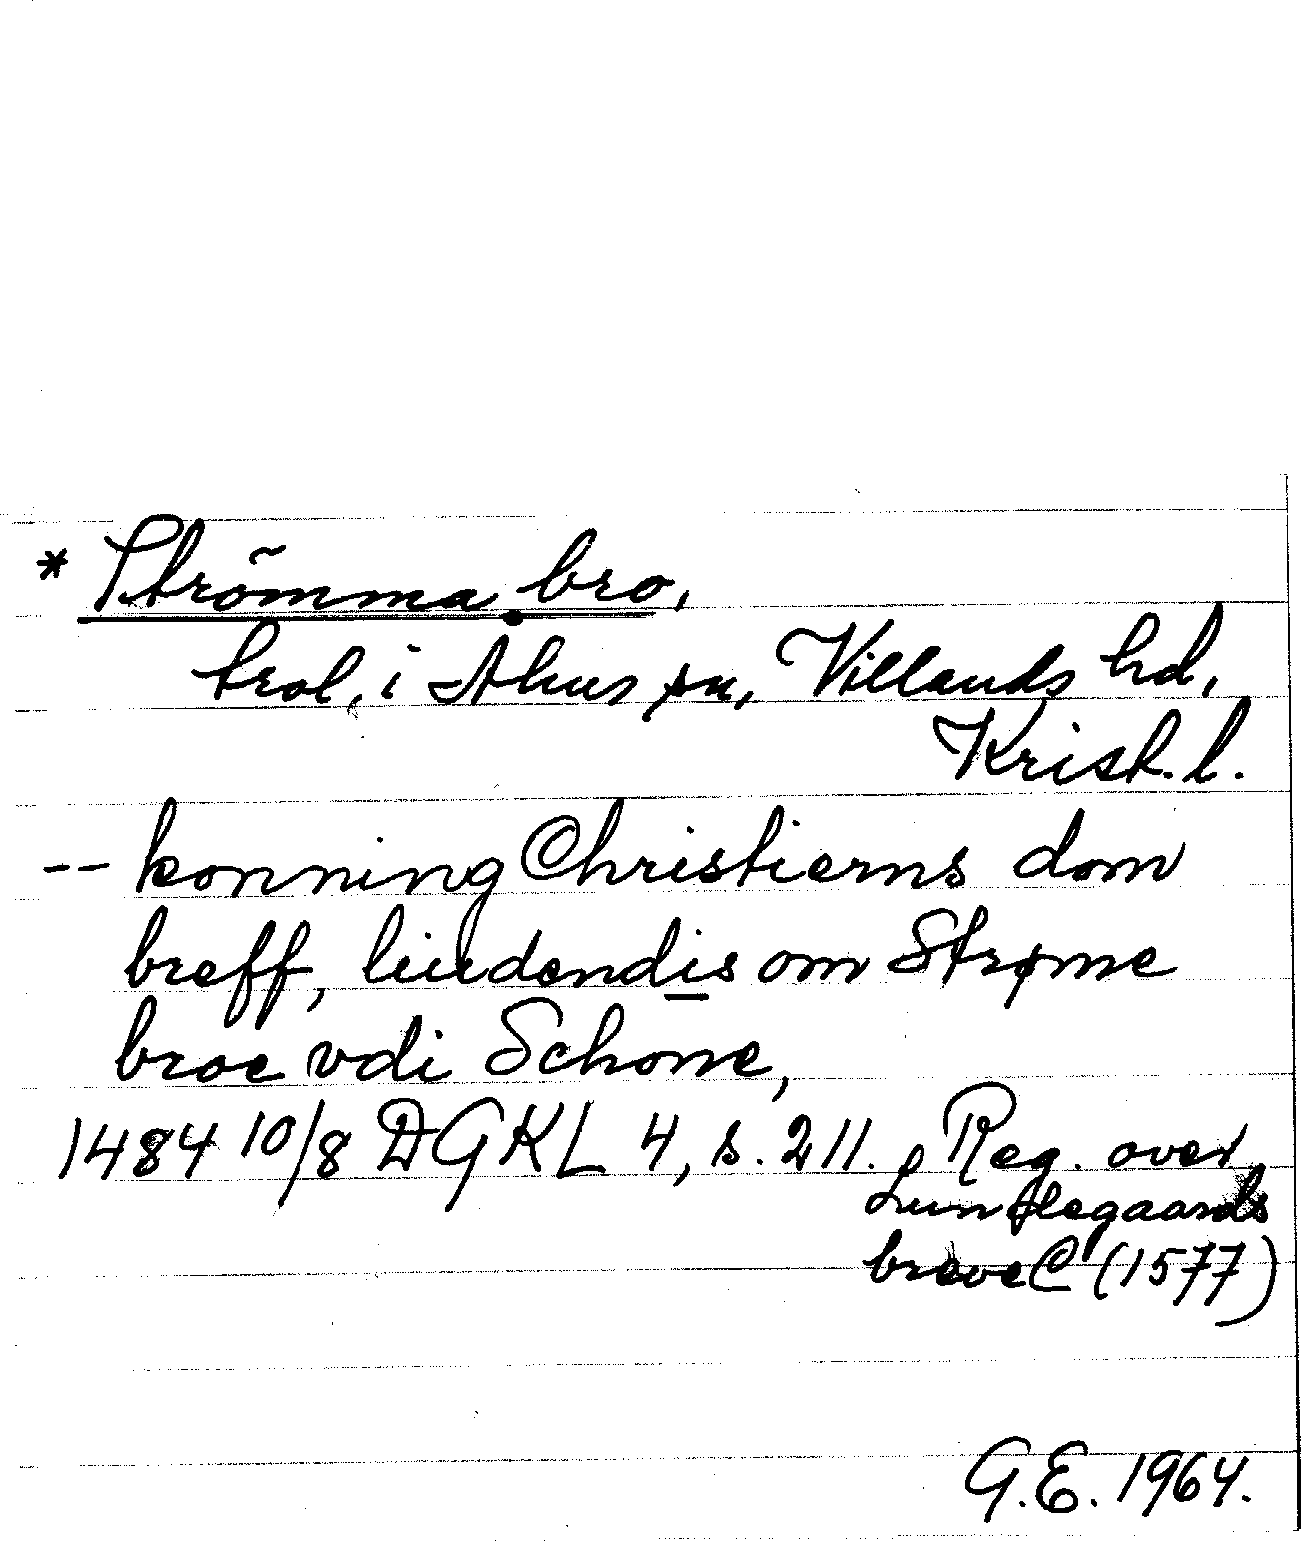 * Strömma bro,
trol. i Åhus sn, Villands hd,
Krist. l.
-- konning Christierns dom
breff, liudendis om Strøme
broe vdi Schone,
1484 10/8 DGKL 4, s. 211. Reg. over
Lundegaards
breve C (1577)
G.E. 1964.